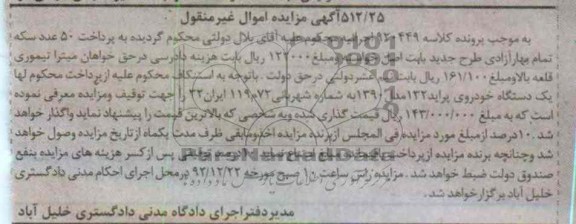 ۵۱۲/۲۵آگهی مزایده اموال غیرمنقول
به موجب پرونده کلاسه ۹۲۰۴۴۹ اجرا محکوم علیه آقای بلال دولتی محکوم گردیده به پرداخت ۵۰ عدد سکه
تمام بهار آزادی طرح جدید بابت اصل ومبلغ ۱۲۲۰۰۰ ریال بابت هزینه دادرسی درحق خواهان میترا تیموری
قلعه بالاومبلغ ۱۶۱/۱۰۰ ریال بابت دولتی درحق دولت . باتوجه به استنکاف محکوم علیه ازپرداخت محکوم لها
یک دستگاه خودروی پراید۱۳۲مدل ۱۳۹۰به شماره شهربانی ایران۳۲ را جهت توقیف ومزایده معرفی نموده
است که به مبلغ ۱۴۳/۰۰۰/۰۰۰ ریال قیمت گذاری شده وبه شخصی که بالاترین قیمت را پیشنهاد نماید واگذار خواهد
شد .۱۰درصد ازمبلغ مورد مزایده فی المجلس ازبرنده مزایده اخذومابقی ظرف مدت یکماه ازتاریخ مزایده وصول خواهد
شد وچنانچه برنده مزایده ازپرداخت پس از کسر هزینه های مزایده بنفع
صندوق دولت ضبط خواهد شد . مزایده راس ساعت ۱۰ صبح مورخه ۹۲/۱۲/۲۲ درمحل اجرای احکام مدنی دادگستری
خلیل آباد برگزارخواهد شد.
مدیردفتراجرای دادگاه مدنی دادگستری خلیل آباد